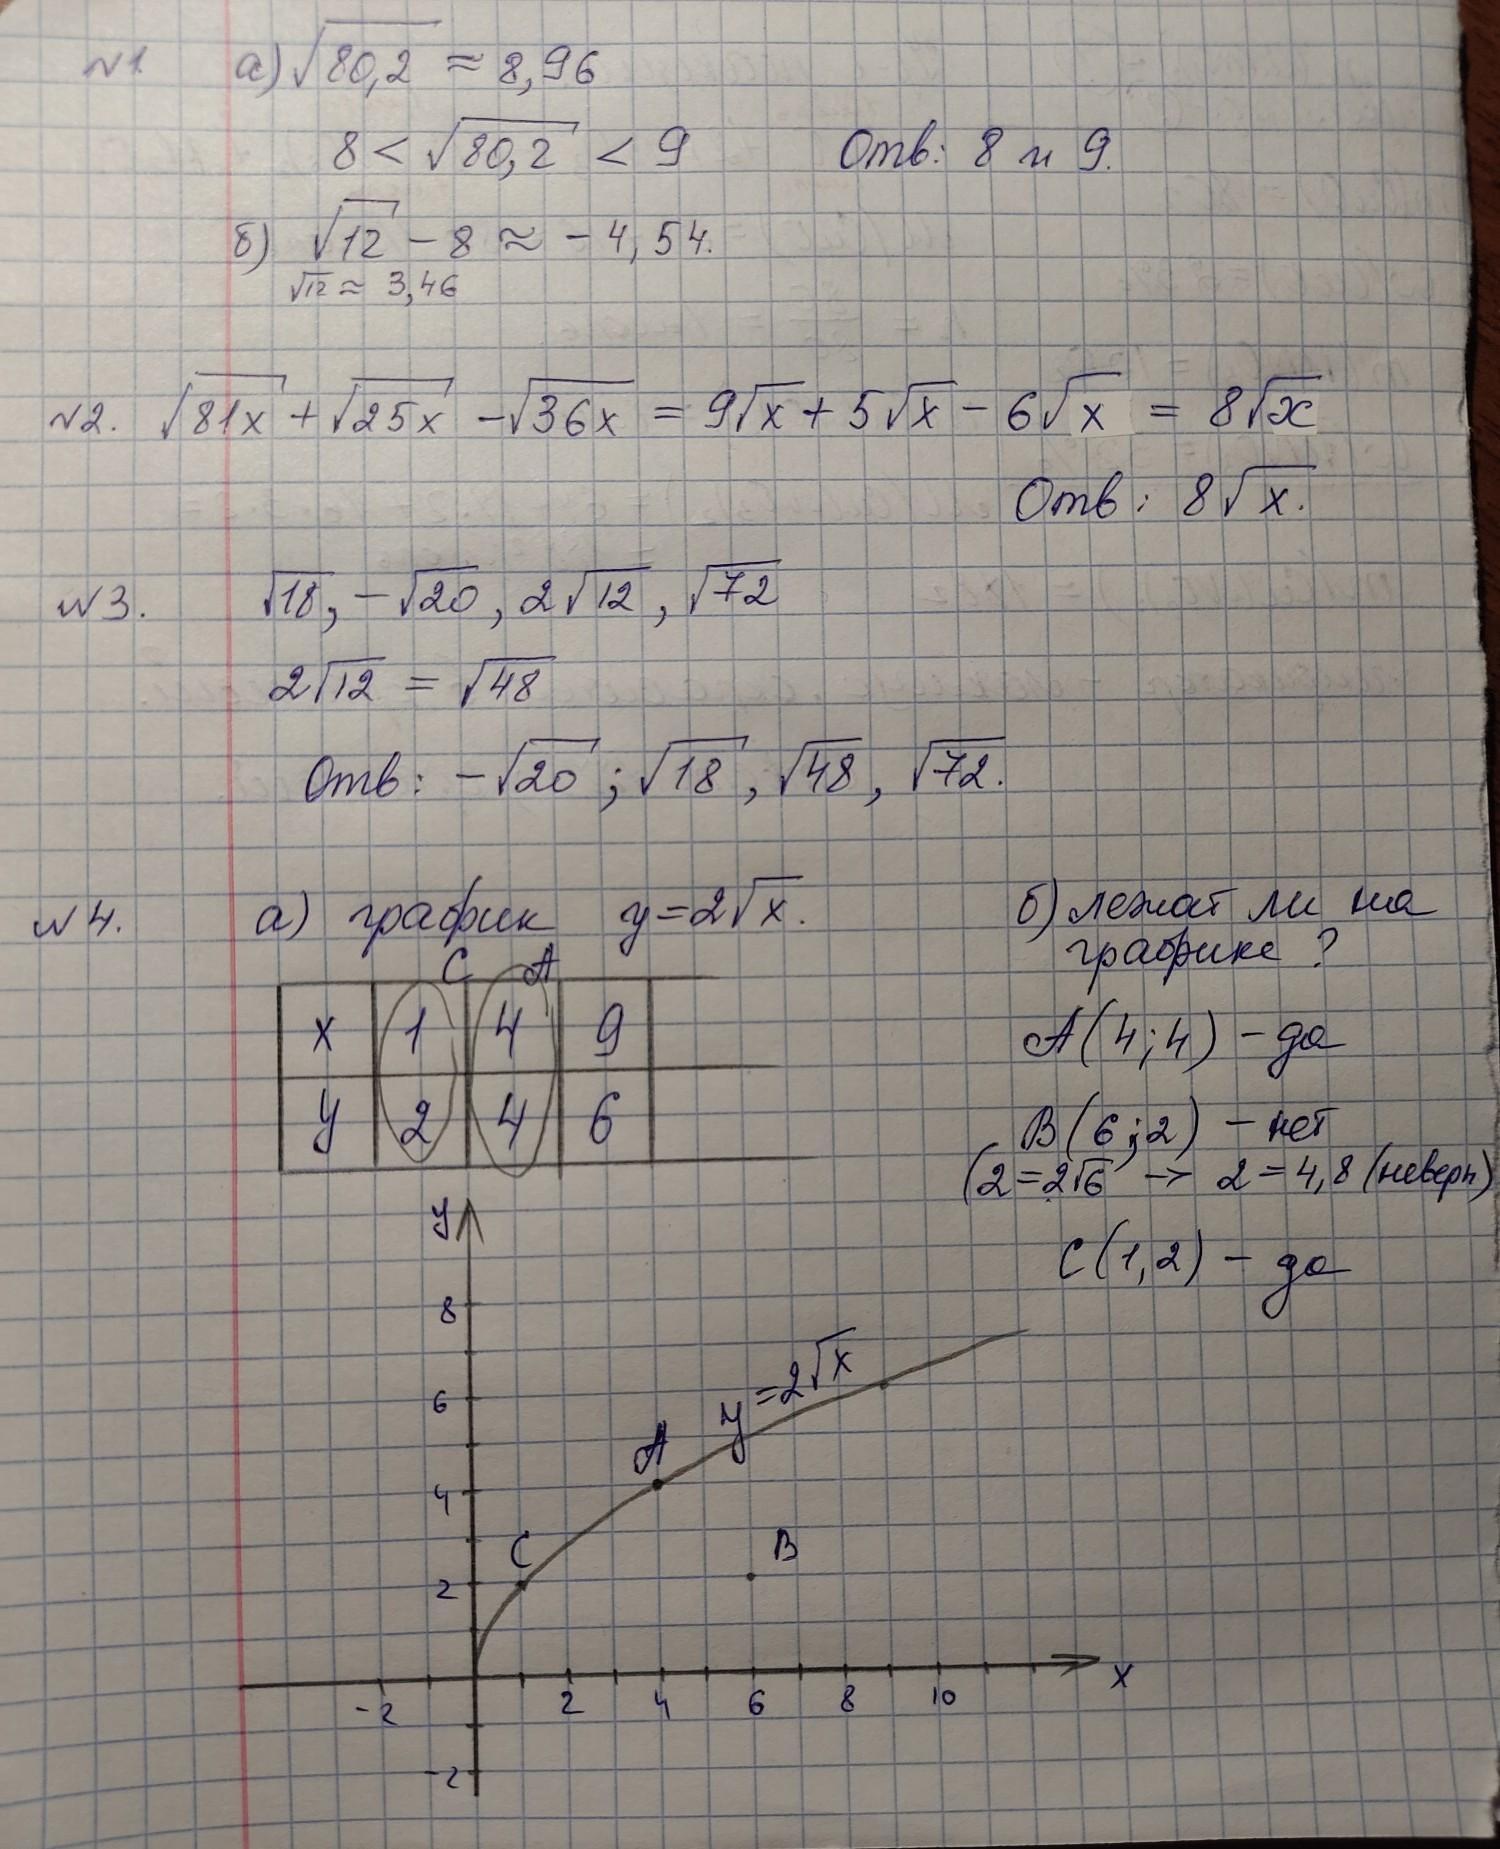 №1. а) √80,2 ≈ 8,96
8 < √80,2 < 9 Отв: 8 и 9.
б) √12 - 8 ≈ -4,54.
√12 ≈ 3,46
№2. √81x + √25x - √36x = 9√x + 5√x - 6√x = 8√x
Отв: 8√x.
№3. √18, -√20, 2√12, √72
2√12 = √48
Отв: -√20; √18, √48, √72.
№4. а) график y=2√x.
C A
x 1 4 9
y 2 4 6
б) лежат ли на
графике?
A(4;4) - да
B(6;2) - нет
(2=2√6 → 2=4,8 (неверн)
C(1,2) - да
y
8
6
4
2
-2
-2 2 4 6 8 10 x
y=2√x
A
C
B